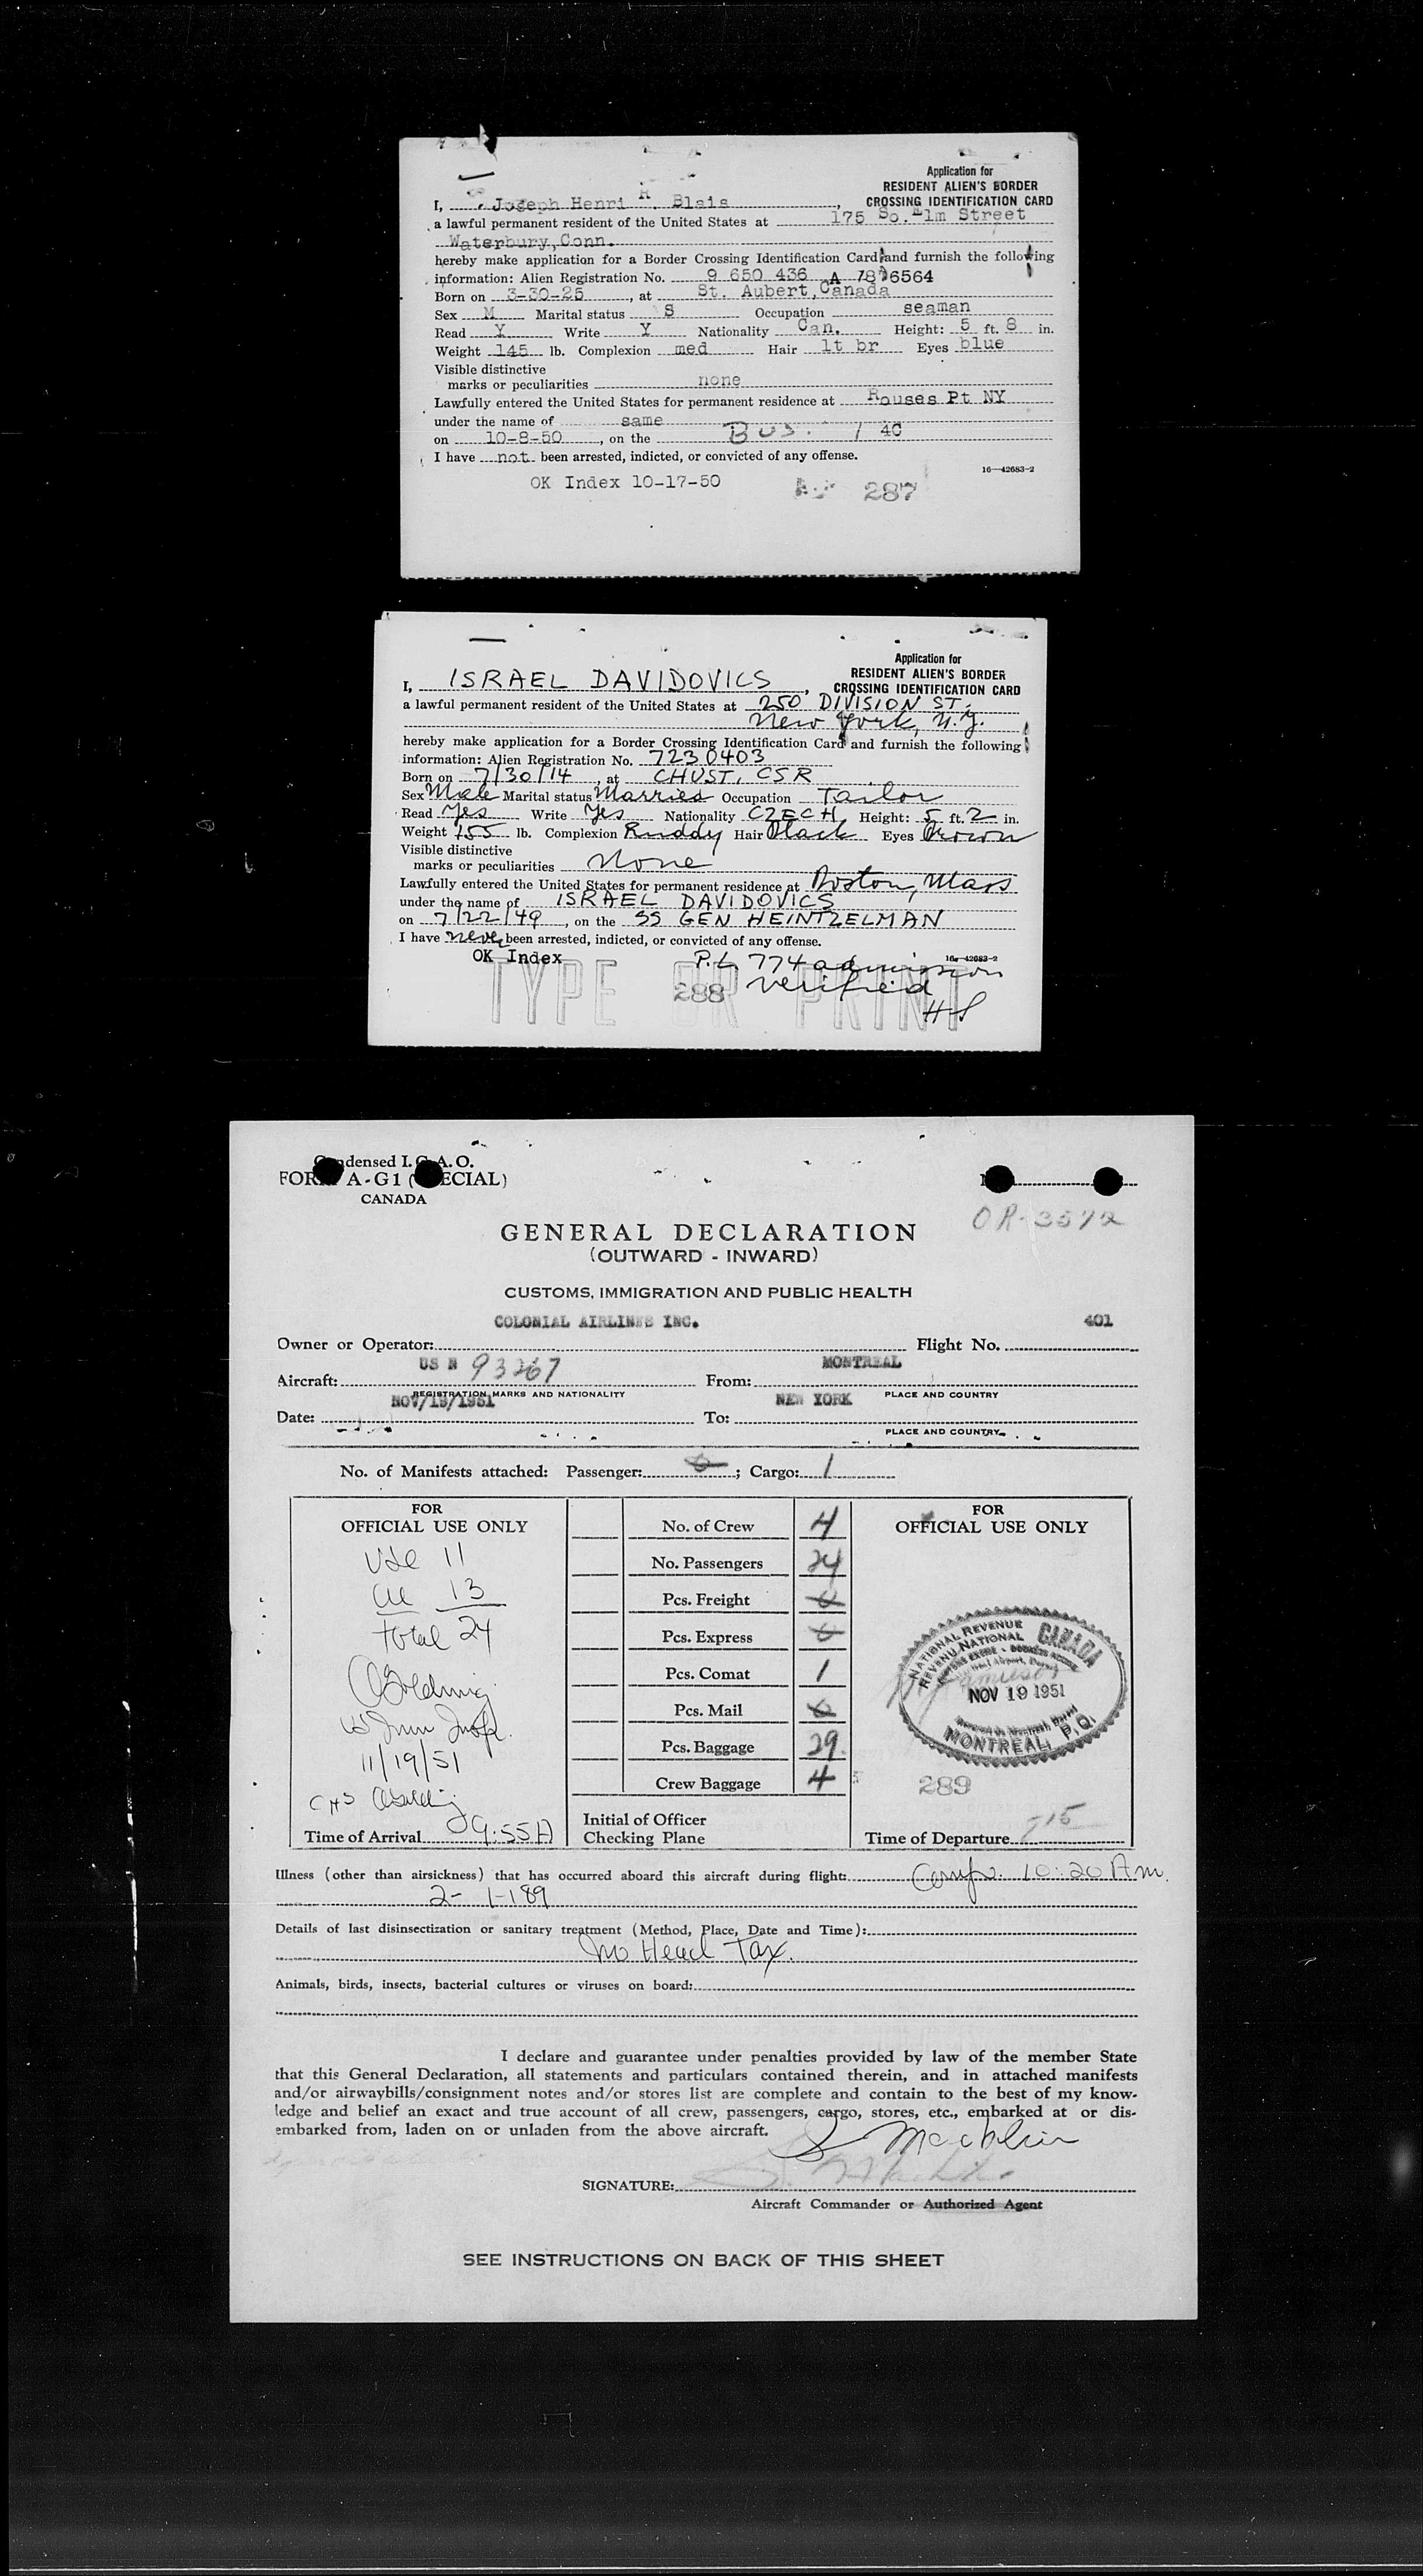 Application for
RESIDENT ALIEN'S BORDER
CROSSING IDENTIFICATION CARD
I, Joseph Henri R Blais,
a lawful permanent resident of the United States at 175 So. Elm Street
Waterbury, Conn.
hereby make application for a Border Crossing Identification Card and furnish the following
information: Alien Registration No. 9 650 436 A 7876564
Born on 3-30-25, at St. Aubert, Canada
Sex M Marital status S Occupation seaman
Read Y Write Y Nationality Can. Height: 5 ft. 8 in.
Weight 145 lb. Complexion med Hair lt br Eyes blue
Visible distinctive
marks or peculiarities none
Lawfully entered the United States for permanent residence at Rouses Pt NY
under the name of same
on 10-8-50, on the Bus. / 4C
I have not been arrested, indicted, or convicted of any offense.
16—42683-2
OK Index 10-17-50 287
Application for
RESIDENT ALIEN'S BORDER
CROSSING IDENTIFICATION CARD
I, ISRAEL DAVIDOVICS,
a lawful permanent resident of the United States at 250 DIVISION ST.
New York, N.Y.
hereby make application for a Border Crossing Identification Card and furnish the following
information: Alien Registration No. 7230403
Born on 7/30/14, at CHUST, CSR
Sex Male Marital status Married Occupation Tailor
Read Yes Write Yes Nationality CZECH Height: 5 ft. 2 in.
Weight 155 lb. Complexion Ruddy Hair Black Eyes Brown
Visible distinctive
marks or peculiarities None
Lawfully entered the United States for permanent residence at Boston, Mass
under the name of ISRAEL DAVIDOVICS
on 7/22/49, on the SS GEN HEINTZELMAN
I have never been arrested, indicted, or convicted of any offense.
16—42683-2
OK Index P.L. 774 admission
288 verified
HS
TYPE OR PRINT
Condensed I.C.A.O.
FORM A-G1 (SPECIAL)
CANADA
OR-3572
GENERAL DECLARATION
(OUTWARD - INWARD)
CUSTOMS, IMMIGRATION AND PUBLIC HEALTH
COLONIAL AIRLINES INC. 401
Owner or Operator: Flight No.
US N 93267 MONTREAL
Aircraft: From:
REGISTRATION MARKS AND NATIONALITY PLACE AND COUNTRY
NOV/19/1951 NEW YORK
Date: To:
PLACE AND COUNTRY
No. of Manifests attached: Passenger: 0; Cargo: 1
FOR
OFFICIAL USE ONLY
No. of Crew 4
No. Passengers 24
Pcs. Freight 0
Pcs. Express 0
Pcs. Comat 1
Pcs. Mail 0
Pcs. Baggage 29
Crew Baggage 4
Initial of Officer
Checking Plane
FOR
OFFICIAL USE ONLY
11
13
total 24
11/19/51
Time of Arrival 9:55 A
NATIONAL REVENUE
REVENU NATIONAL
CANADA
NOV 19 1951
MONTREAL, P.Q.
289
Time of Departure 715
Illness (other than airsickness) that has occurred aboard this aircraft during flight: Comp. 10:20 Am.
2- 1-189
Details of last disinsectization or sanitary treatment (Method, Place, Date and Time):
No Head Tax.
Animals, birds, insects, bacterial cultures or viruses on board:
I declare and guarantee under penalties provided by law of the member State
that this General Declaration, all statements and particulars contained therein, and in attached manifests
and/or airwaybills/consignment notes and/or stores list are complete and contain to the best of my know-
ledge and belief an exact and true account of all crew, passengers, cargo, stores, etc., embarked at or dis-
embarked from, laden on or unladen from the above aircraft.
SIGNATURE:
Aircraft Commander or Authorized Agent
SEE INSTRUCTIONS ON BACK OF THIS SHEET